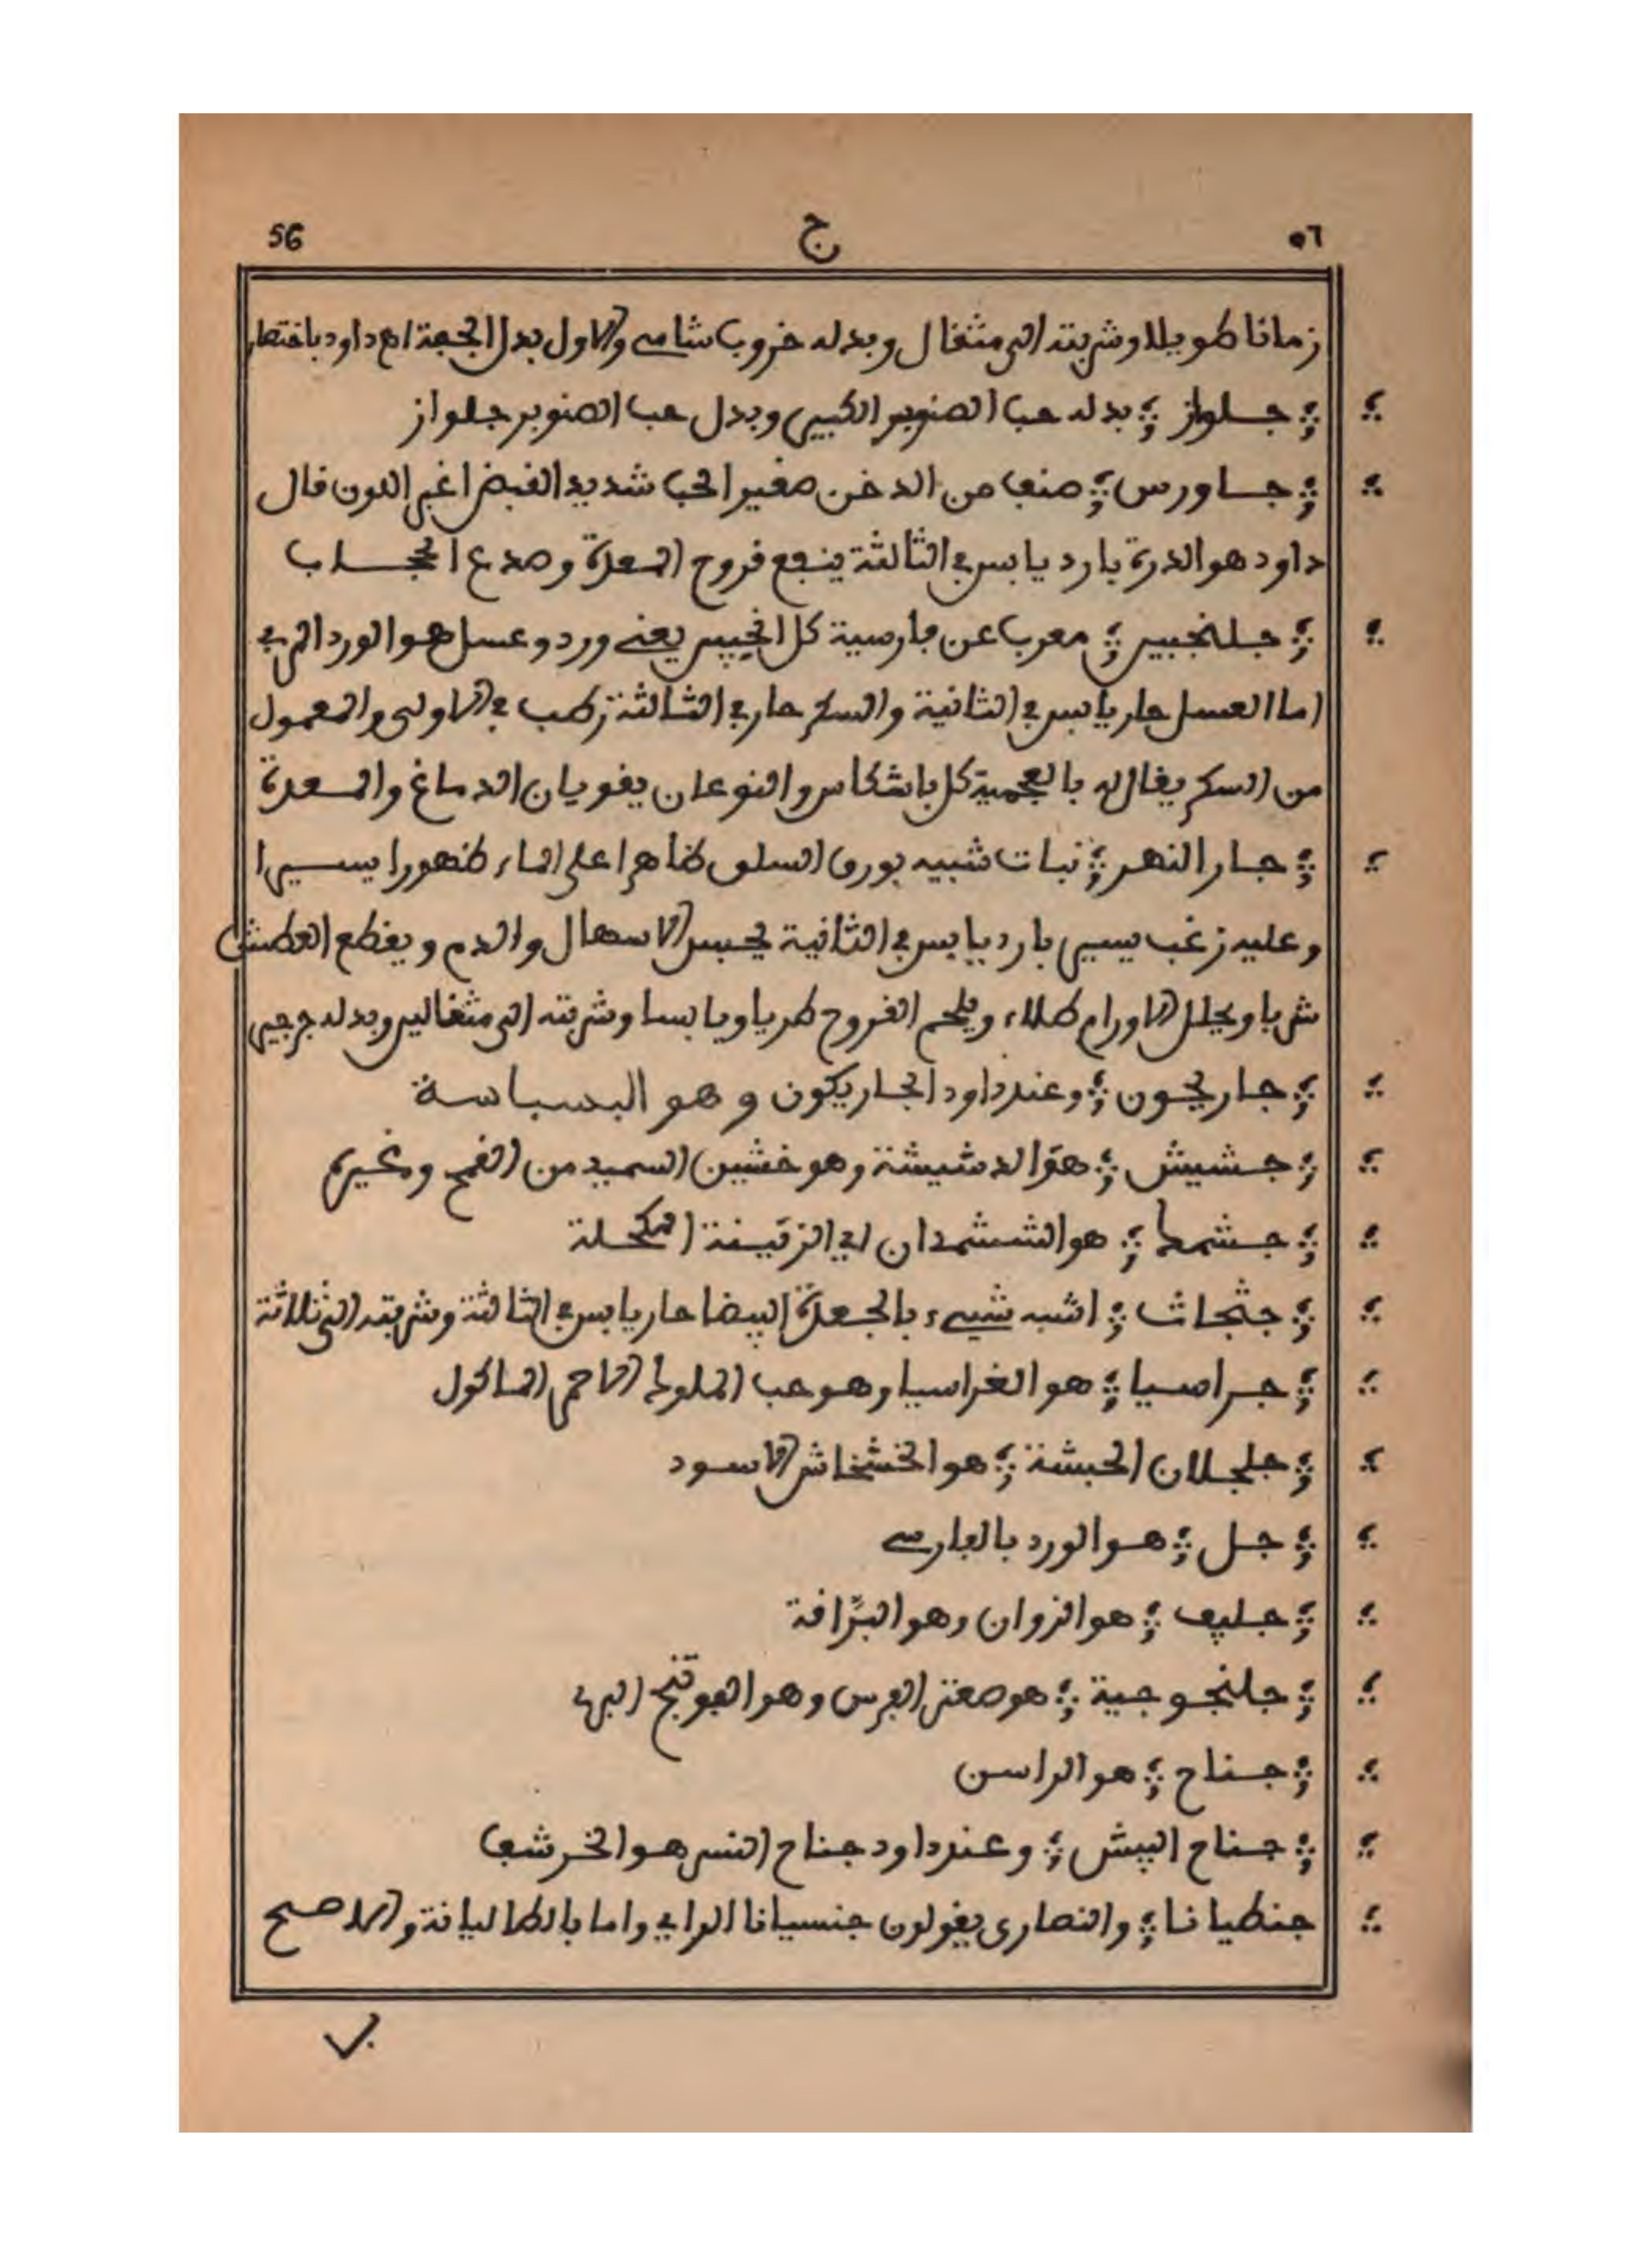 ٥٦ ج 56
زمانا طويلا وشربته الى مثقال وبدله خروب شامي والاول بدل الجعدة اهـ داود باختصار
جلواز بدله حب الصنوبر الكبير وبدل حب الصنوبر جلواز
جاورس صنف من الدخن صغير الحب شديد القبض اغبر اللون قال
داود هو الدرة بارد يابس في الثالثة ينفع قروح المعدة وصدع
جلنجبين معرب عن فارسية كل انجبين يعني ورد وعسل هو الورد المربى
اما العسل حار يابس في الثانية والسكر حار في الثالثة رطب في الاولى والمعمول
من السكر يقال له بالعجمية كل باشكر والنوعان يقويان الدماغ والمعدة
جار النهر نبات شبيه بورق السلق ظاهرا على الماء ظهورا يسيرا
وعليه زغب يسير بارد يابس في الثانية يحبس الاسهال والدم ويقطع العطش
شربا ويحلل الاورام طلاء ويلحم القروح طريا ويابسا وشربته الى مثقالين وبدله جرجير
جاريجون وعند داود الجاريكون وهو البسباسة
جشيش هو الدشيشة وهو خشين السميد من القمح وغيره
جشمط هو الششمدان اي الزقينة المكحلة
جثجاث اشبه شيء بالجعدة البيضا حار يابس في الثالثة وشربته الى ثلاثة
جراصيا هو القراسيا وهو حب الملوك الاحمر الماكول
جلجلان الحبشة هو الخشخاش الاسود
جل هو الورد بالفارسي
جليف هو الزوان وهو البراقة
جلنجوجية هو صعتر الفرس وهو الفوتنج البري
جناح هو الراسن
جناح البيش وعند داود جناح النسر هو الخرشف
جنطيانا والنصارى يقولون جنسيانا الراي واما بالطاليانة والاصح